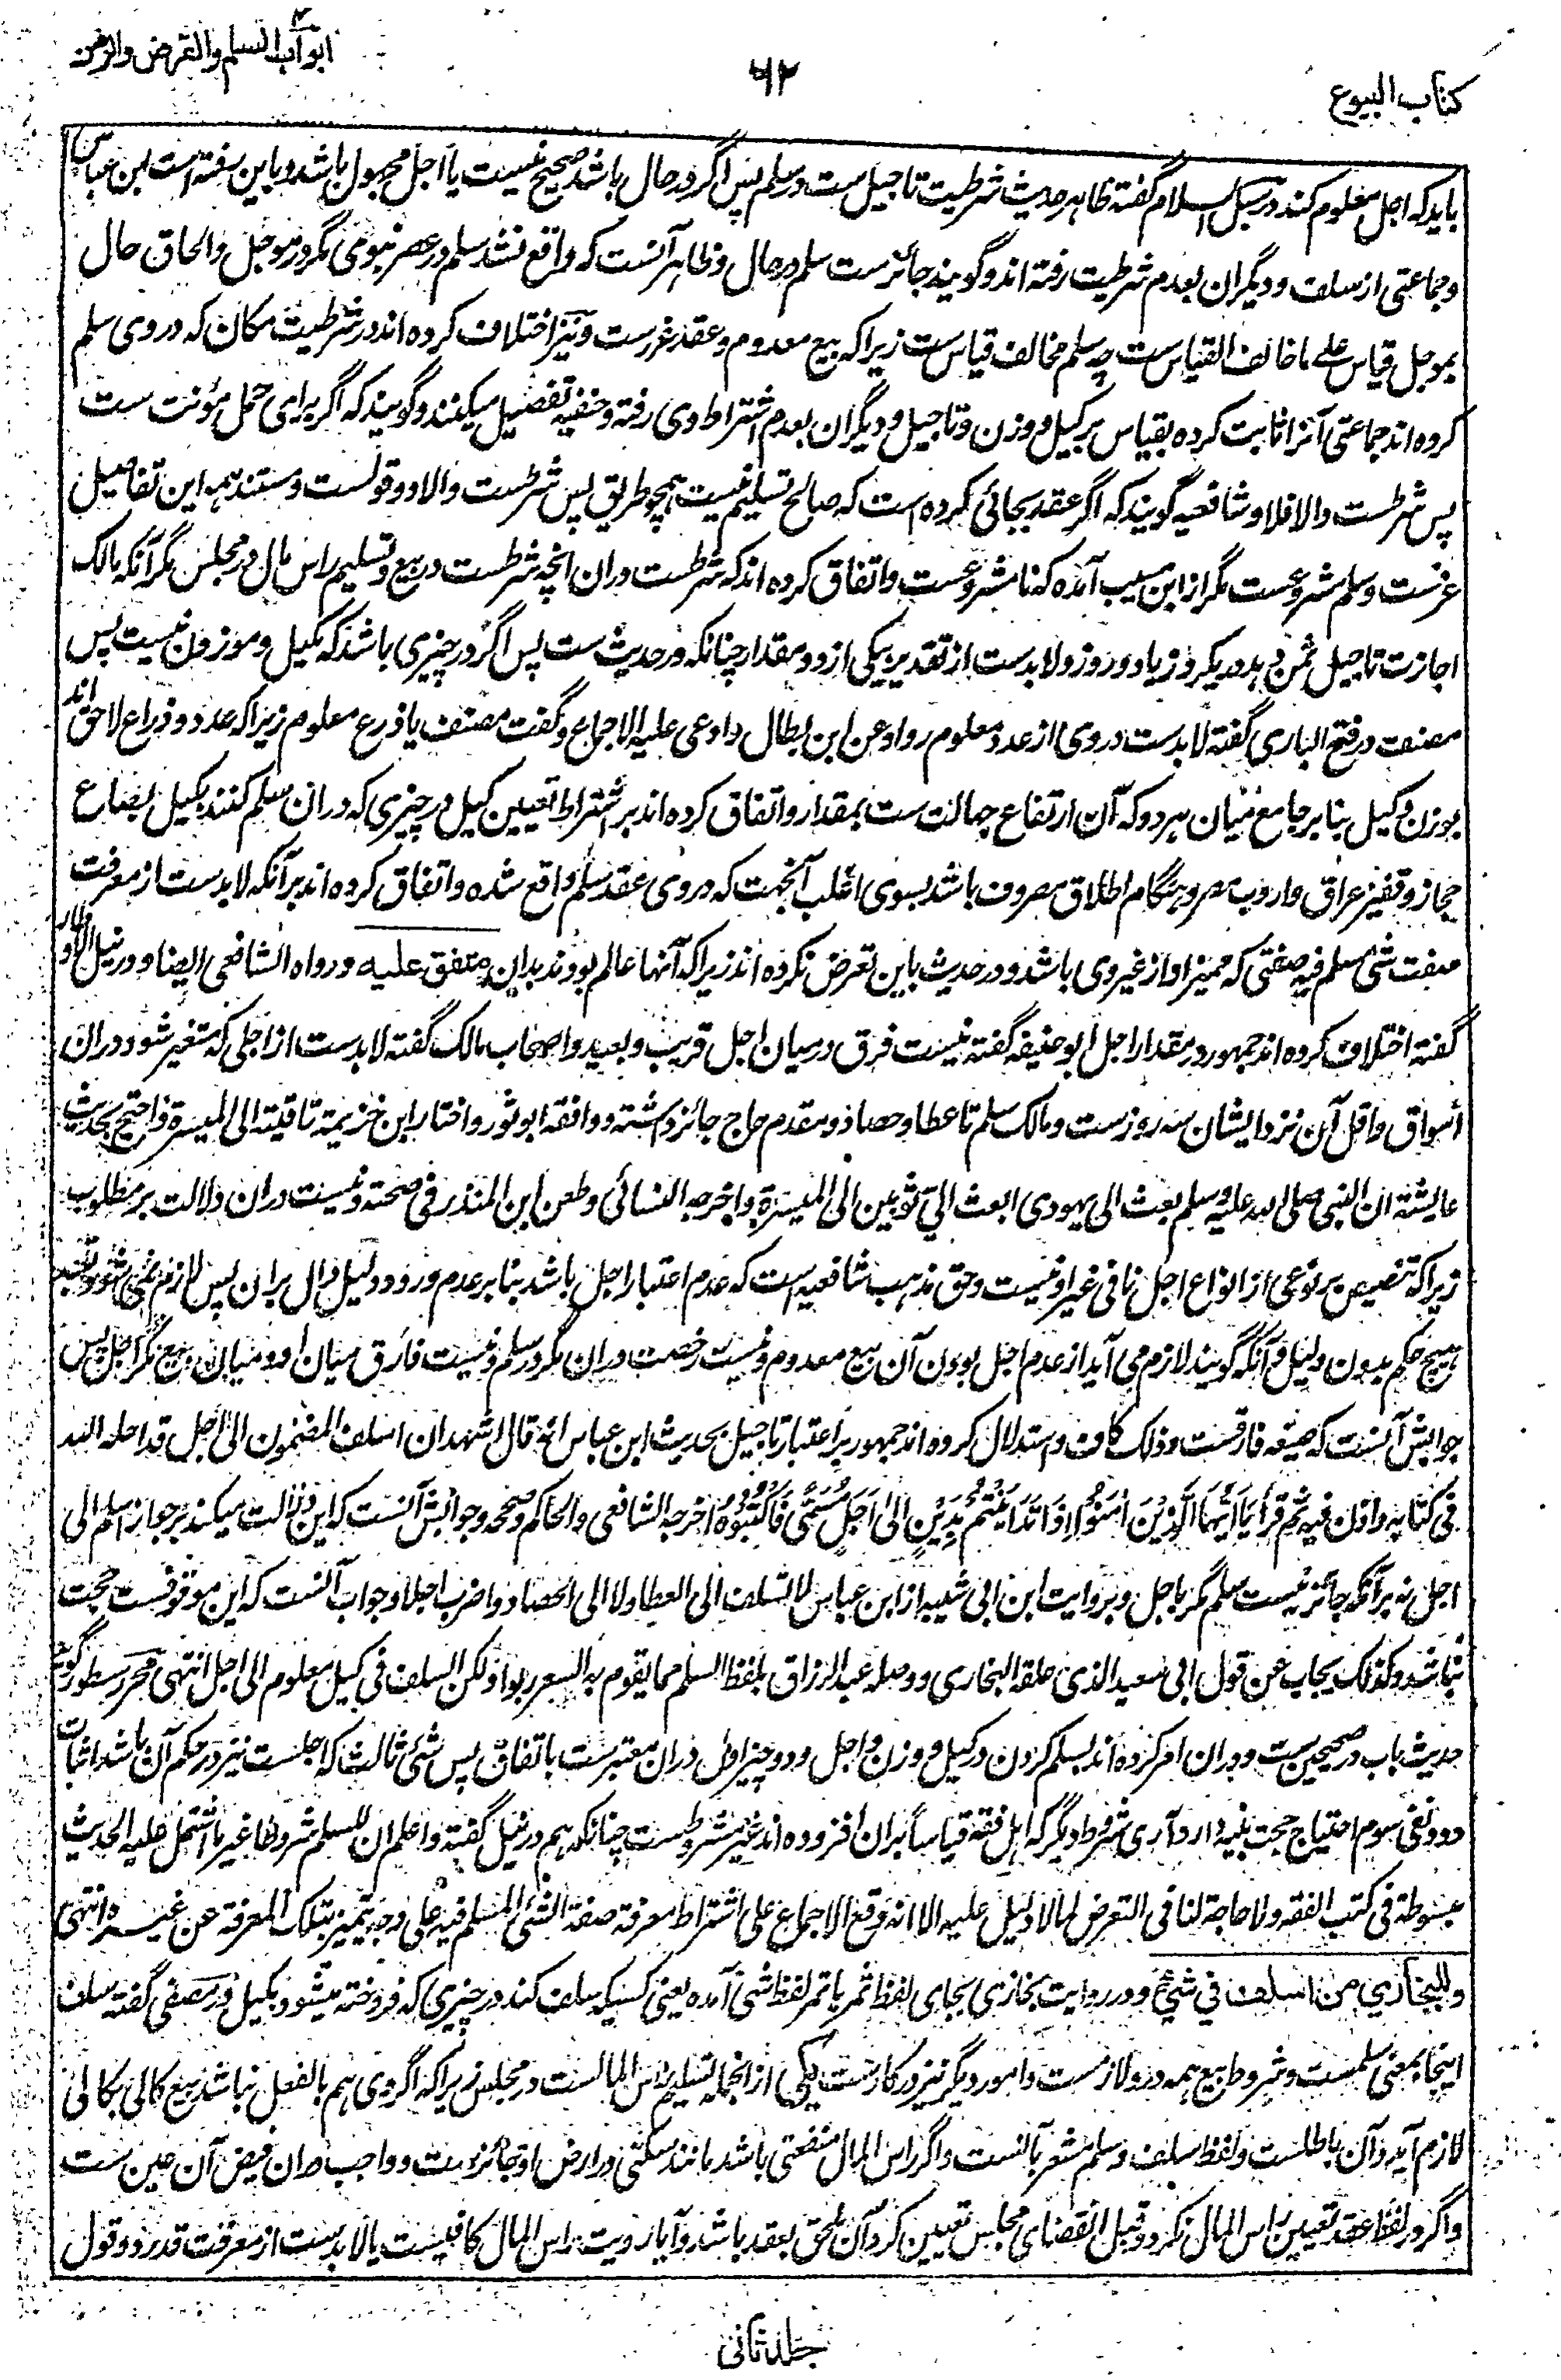 کتاب البیوع
۶۲
ابواب السلم والقرض والرهن
باید که اجل معلوم کند در سبل السلام گفته ظاهر حدیث شرطیت تاجیل ست در سلم پس اگر در حال باشد صحیح نیست یا اجل مجهول باشد و باین رفته است ابن عباس
و جماعتی از سلف و دیگران بعدم شرطیت رفته اند و گویند جائز ست سلم در حال و ظاهر آنست که واقع نشد سلم در عصر نبوی مگر در موجل و الحاق حال
بموجل قیاس علے ما خالف القیاس ست چه سلم مخالف قیاس ست زیرا که بیع معدوم و عقد غرر ست و نیز اختلاف کرده اند در شرطیت مکان که در وی سلم
کرده اند جماعتی آنرا ثابت کرده بقیاس بر کیل و وزن و تاجیل و دیگران بعدم اشتراط وی رفته و حنفیه تفصیل میکنند و گویند که اگر برای حمل مؤنت ست
پس شرطست والا فلا و شافعیه گویند که اگر عقد بجائی کرده است که صالح تسلیم نیست همچو طریق پس شرطست والا دو قولست و مستند همه این تفاصیل
عرفست و سلم مشروعست مگر از ابن مسیب آمده که نامشروعست و اتفاق کرده اند که شرطست دران انچه شرطست در بیع و تسلیم راس مال در مجلس مگر آنکه مالک
اجازت تاجیل ثمن می دهد در یکروز یا دو روز و لابدست از تقدیر بیکی از دو مقدار چنانکه در حدیث ست پس اگر در چیزی باشد که مکیل و موزون نیست پس
مصنف در فتح الباری گفته لابدست در وی از عدد معلوم رواه عن ابن بطال و ادعی علیه الاجماع و گفت مصنف یا ذرع معلوم زیرا که عدد و ذراع لاحق اند
بوزن و کیل بنا بر جامع میان هر دو که آن ارتفاع جهالت ست بمقدار و اتفاق کرده اند بر اشتراط تعیین کیل در چیزی که دران سلم کنند بکیل بصاع
حجاز و قفیز عراق و اردب مصر و هنگام اطلاق مصروف باشد بسوی اغلب آنجهت که در وی عقد سلم واقع شده و اتفاق کرده اند بر آنکه لابدست از معرفت
صفت شی مسلم فیه صفتی که ممیز او از غیر وی باشد و در حدیث باین تعرض نکرده اند زیرا که آنها عالم بودند بدان متفق علیه و رواه الشافعی ایضا و در نیل الاوطار
گفته اختلاف کرده اند جمهور در مقدار اجل ابو حنیفه گفته نیست فرق درمیان اجل قریب و بعید و اصحاب مالک گفته لابدست از اجلی که متغیر شود دران
اسواق و اقل آن نزد ایشان سه روز ست و مالک سلم تا عطا و حصاد و مقدم حاج جائز داشته و وافقه ابو ثور و اختار ابن خزیمة تاقیته الی المیسرة و احتج بحدیث
عایشة ان النبی صلی الله علیه وسلم بعث الی یهودی ابعث الی ثوبین الی المیسرة و اخرجه النسائی و طعن ابن المنذر فی صحته و نیست دران دلالت بر مطلوب
زیرا که تنصیص بر نوعی از انواع اجل نافی غیر او نیست و حق مذهب شافعیه است که عدم اعتبار اجل باشد بنا بر عدم ورود دلیل دال بران پس لازم نمی شود تعبد
بهیچ حکم بدون دلیل و آنکه گویند لازم می آید از عدم اجل بودن آن بیع معدوم و نیست رخصت دران مگر در سلم و نیست فارق میان او و میان بیع مگر اجل پس
جوابش آنست که صیغه فارقست و ذلک کاف و استدلال کرده اند جمهور بر اعتبار تاجیل بحدیث ابن عباس انه قال اشهد ان السلف المضمون الی اجل قد احله الله
فی کتابه و اذن فیه ثم قرأ یَا اَیُّهَا الَّذِیْنَ اٰمَنُوْا اِذَا تَدَایَنْتُمْ بِدَیْنٍ اِلٰی اَجَلٍ مُّسَمًّی فَاکْتُبُوْهُ اخرجه الشافعی والحاکم و صححه و جوابش آنست که این دلالت میکند بر جواز سلم الی
اجل نه بر آنکه جائز نیست سلم مگر باجل و بروایت ابن ابی شیبه از ابن عباس لا تسلف الی العطا ولا الی الحصاد و اضرب اجلا و جواب آنست که این موقوفست حجت
نباشد و کذلک یجاب عن قول ابی سعید الذی علقه البخاری و وصله عبد الرزاق بلفظ السلم مما یقوم به السعر ربوا و لکن السلف فی کیل معلوم الی اجل انتهی محرر سطور گوید
حدیث باب در صحیحین ست و دران امر کرده اند بسلم کردن در کیل و وزن و اجل و دو چیز اول دران معتبرست باتفاق پس شئ ثالث که اجلست نیز در حکم آن باشد اثبات
دو و نفی سوم احتیاج حجت بینه دارد آری شروط دیگر که اهل فقه قیاسا بران افزوده اند غیر مشروطست چنانکه هم در نیل گفته و اعلم ان للسلم شروطا غیر ما اشتمل علیه الحدیث
مبسوطة فی کتب الفقه ولا حاجة لنا فی التعرض لما لا دلیل علیه الا انه وقع الاجماع علی اشتراط معرفة صفة الشئ المسلم فیه علی وجه یتمیز بتلک المعرفة عن غیره انتهی
وللبخاری من اسلف فی شیء و در روایت بخاری بجای لفظ ثمر یا تمر لفظ شی آمده یعنی کسیکه سلف کند در چیزی که فروخته میشود بکیل و در مصفی گفته سلف
اینجا بمعنی سلمست و شروط بیع همه درو لازمست و امور دیگر نیز در کارست یکی از انجمله تسلیم راس المالست در مجلس زیرا که اگر وی هم بالفعل نباشد بیع کالی بکالی
لازم آید و آن باطلست و لفظ سلف و سلم مشعر بآنست و اگر راس المال منفعتی باشد مانند سکنی در ارض او جائزست و واجب دران قبض آن عین ست
و اگر در لفظ عقد تعیین راس المال نکرد و قبل انقضای مجلس تعیین کرد آن ملحق بعقد باشد و آیا رویت راس المال کافیست یا لابدست از معرفت قدر دو قول
جلد ثانی